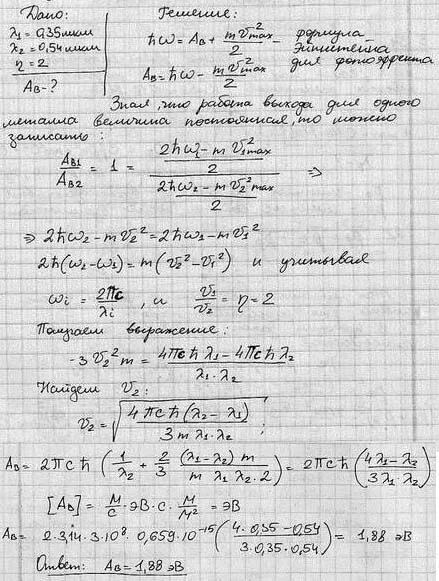 Дано:
λ₁ = 0,35мкм
λ₂ = 0,54мкм
η = 2
Aв - ?
Решение:
ħω = Aв + mv²max/2 - формула Эйнштейна
Aв = ħω - mv²max/2 для фотоэффекта
Зная, что работа выхода для одного
металла величина постоянная, то можно
записать:
Aв1/Aв2 = 1 = ((2ħω₁ - mv₁²max)/2)/((2ħω₂ - mv₂²max)/2) ⇒
⇒ 2ħω₂ - mv₂² = 2ħω₁ - mv₁²
2ħ(ω₂-ω₁) = m(v₂² - v₁²) и учитывая
ωi = 2πc/λi, и v₁/v₂ = η = 2
Получаем выражение:
-3v₂²m = (4πcħλ₁ - 4πcħλ₂)/(λ₁·λ₂)
Найдем v₂:
v₂ = √(4πcħ(λ₂ - λ₁)/(3mλ₁·λ₂));
Aв = 2πcħ(1/λ₂ + 2/3 (λ₁-λ₂)m/(mλ₁λ₂·2)) = 2πcħ((4λ₁-λ₂)/(3λ₁λ₂))
[Aв] = м/с · эВ·с · м/м² = эВ
Aв = 2·3,14·3·10⁸·0,659·10⁻¹⁵((4·0,35-0,54)/(3·0,35·0,54)) = 1,88 эВ
Ответ: Aв = 1,88 эВ